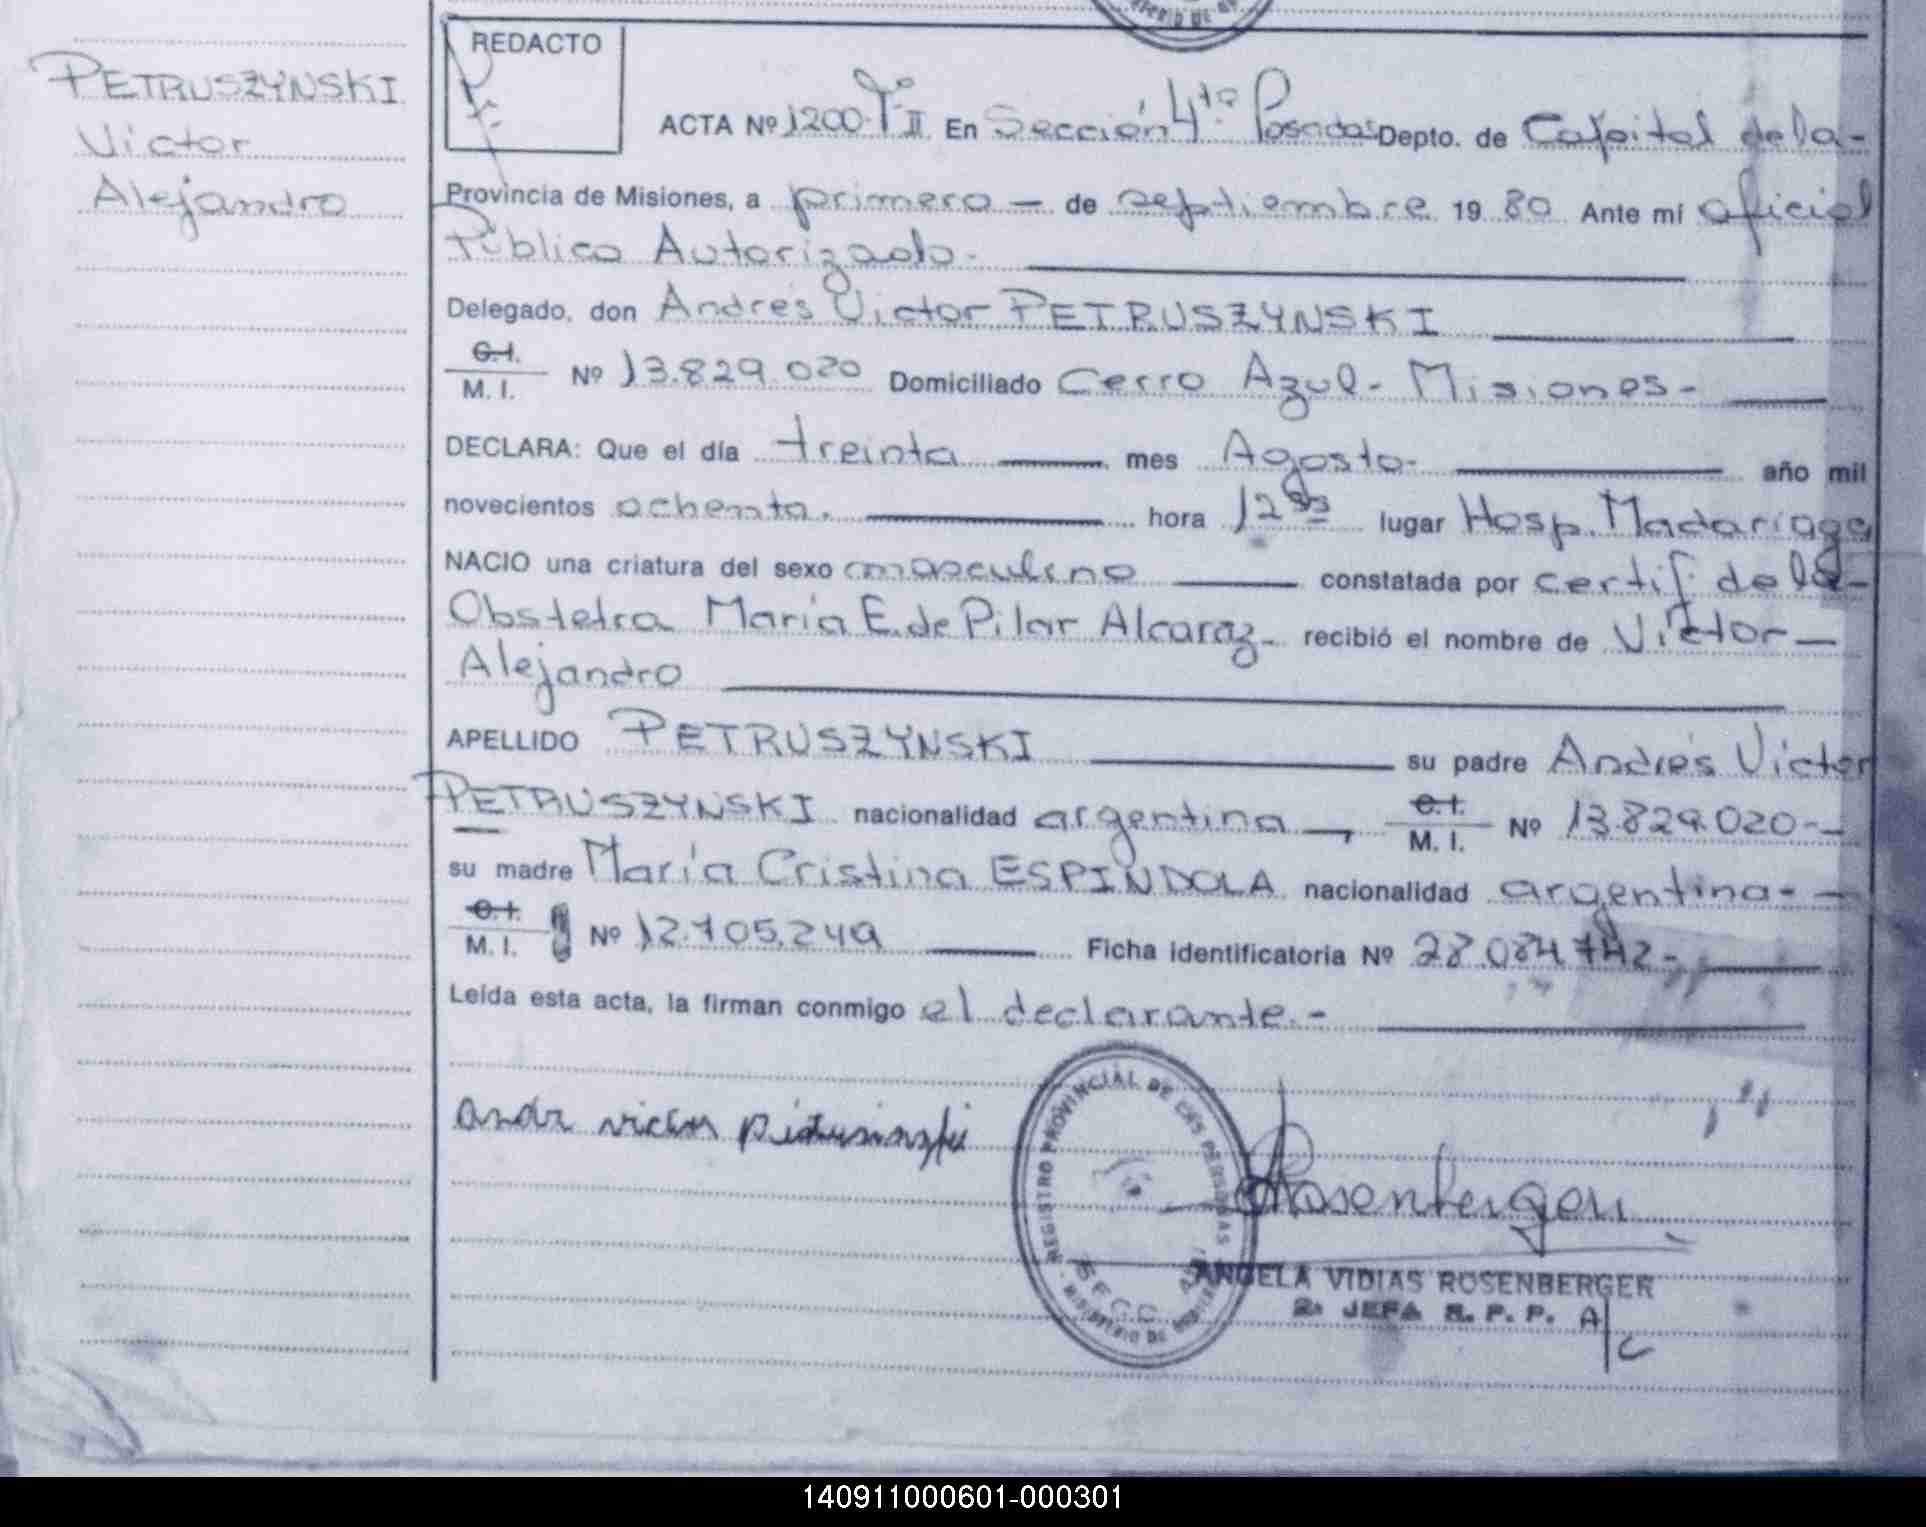 PETRUSZYNSKI
Victor
Alejandro
REDACTO
ACTA Nº 1200 Tº II En Sección 4ta Posadas Depto. de Capital de la-
Provincia de Misiones, a primero — de septiembre 19 80 Ante mí oficial
Público Autorizado.
Delegado, don Andrés Victor PETRUSZYNSKI
C.I.
M. I. Nº 13.829.020 Domiciliado Cerro Azul- Misiones-
DECLARA: Que el día treinta mes Agosto- año mil
novecientos ochenta. hora 12 lugar Hosp. Madariaga
NACIO una criatura del sexo masculino constatada por certif. de la-
Obstetra María E. de Pilar Alcaraz- recibió el nombre de Victor—
Alejandro
APELLIDO PETRUSZYNSKI su padre Andrés Victor
PETRUSZYNSKI nacionalidad argentina —, C.I.
M. I. Nº 13.829.020-
su madre María Cristina ESPINDOLA nacionalidad argentina- -
C.I.
M. I. Nº 12.705.249 Ficha identificatoria Nº 28.084.742-
Leída esta acta, la firman conmigo el declarante.-
REGISTRO PROVINCIAL DE LAS PERSONAS
SECC. 4ta
MINISTERIO DE
Rosenberger
ANGELA VIDIAS ROSENBERGER
2ª JEFA R. P. P. A/C
140911000601-000301